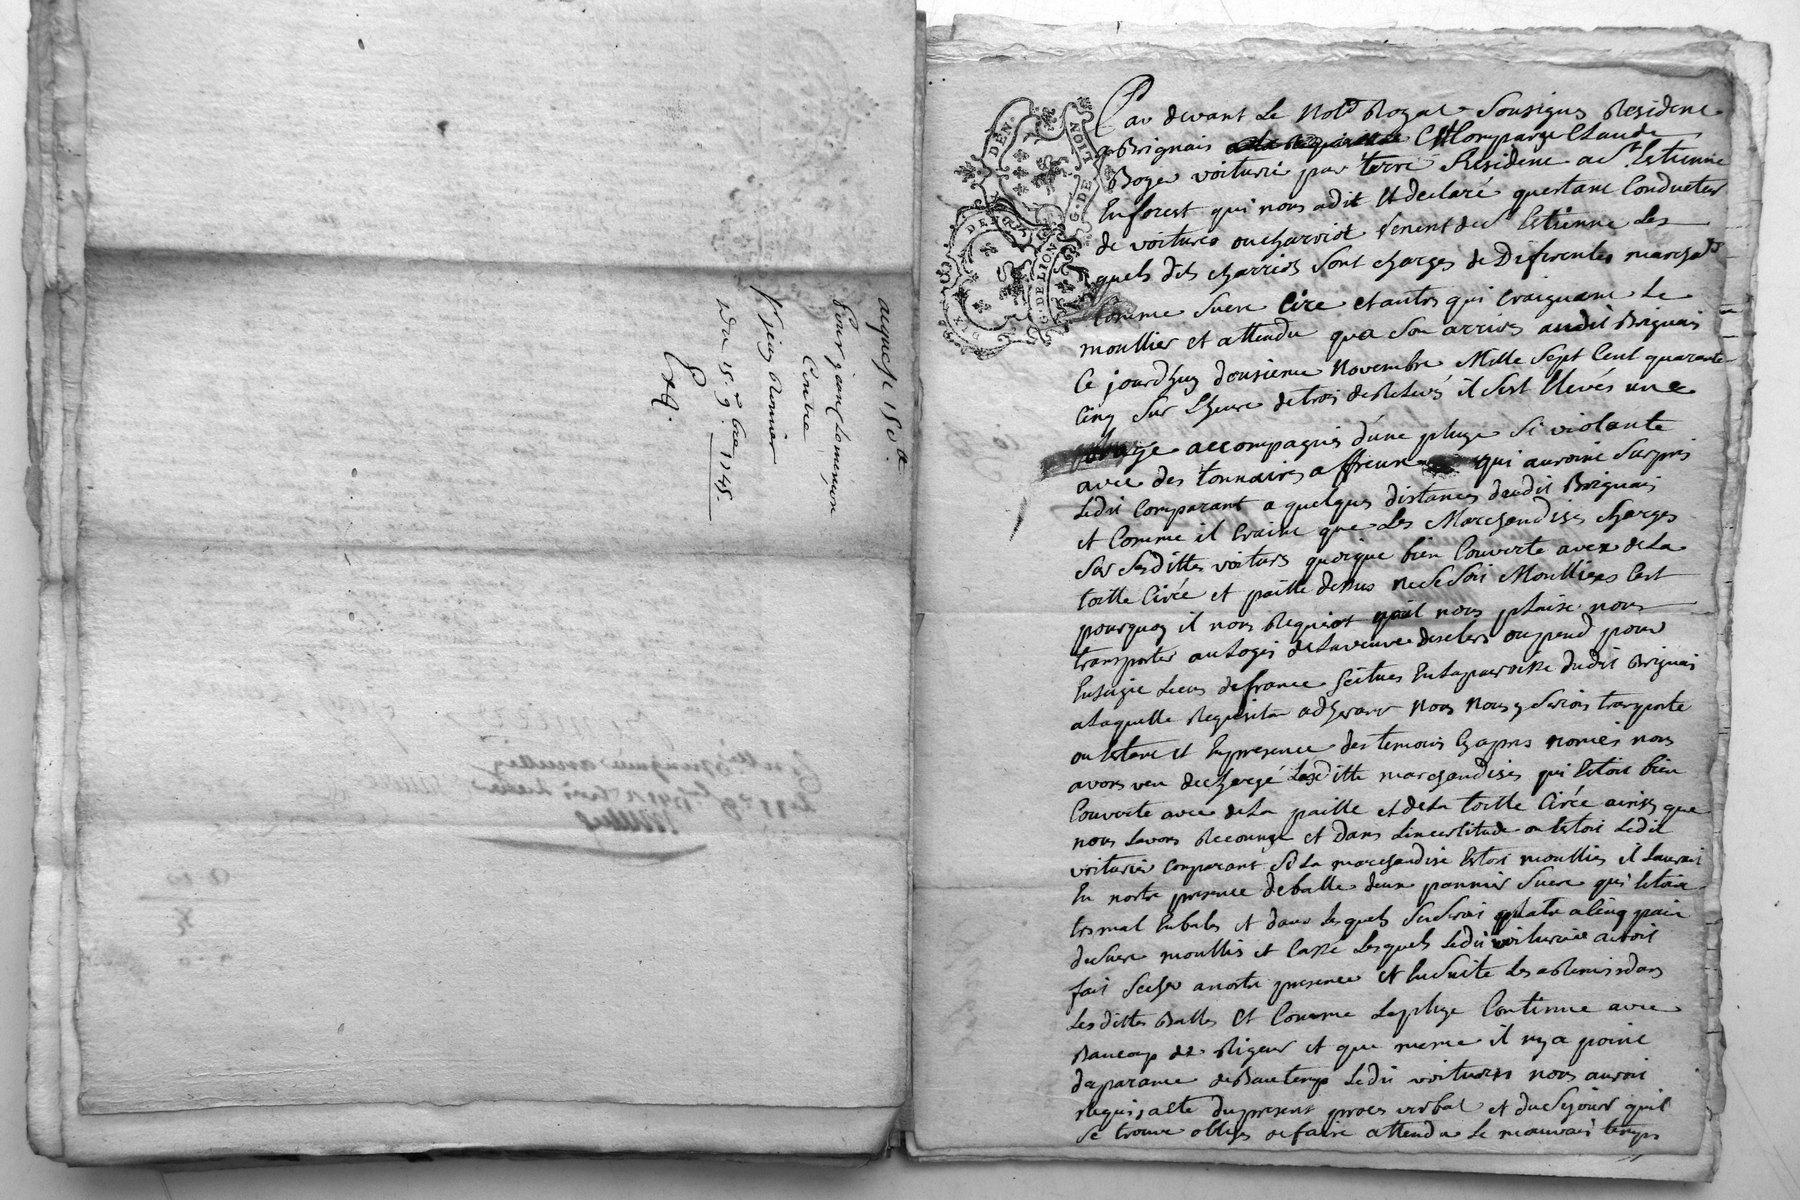 acquest 150ᵗ
Pour jean
Contre
Sʳ jean
Du 15ᵉ 9bre 1745
GEN. DE LION
G. DE LION
Par devant Le Notʳᵉ Royal Sousigné Resident
a Brignais Est Comparu Claude
Boyer voiturié par terre Resident a Sᵗ Estienne
En forest qui nous a dit Et declaré questant Conducteur
de voitures ou charriot venent de Sᵗ Estienne Les
quels dits charriots sont charges de Diferentes marchadˢᵉˢ
Comme sucre Cire et autres qui craignent Le
moullier et attendu que son arrivée audit Brignais
Ce jourdhuy dousieme Novembre Mille Sept Cent quarante
Cinq sur Lheure de trois de Relevé il s'est Elevés une
orage accompagnés d'une pluye si violante
avec des tonnaires affreux qui auroint surpris
Ledit Comparant a quelques distances dudit Brignais
et Comme il Craint que Les Marchandises charges
sur sesdittes voitures quoique bien Couverte avec de La
toille Cirée et paille dessus ne se soit Moulliees Cest
pourquoy il nous Requiert quil nous plaise nous
transporter au Logis de La veuve ou pend pour
Enseigne Lecus de france scitues En La parroisse dudit Brignais
a Laquelle Requisition adherant Nous Nous y seriont transporte
ou Estant et En presence des temoins Cy apres només nous
avons veu dechergé Lesditte marchandises qui Estoit bien
Couverte avec de La paille et de La toille Cirée ainsy que
nous Lavons Reconnu et Dans Lincertitude ou Estoit Ledit
voiturier Comparant si La marchandise Estoit moullies il Lauroit
En nostre presence deballe deux pannier sucre qui Etoint
tres mal Enbales et dans Lesquels quatre a Cinq pain
de sucre moullis et Casse Lesquels Ledit voiturier auroit
fait secher a nostre presence et Ensuite Les a Remis dans
Lesdittes Balles Et Comme La pluye Continue avec
Baucoup de Rigeur et que meme il ny a point
daparance de Beau temps Ledit voiturier nous auroit
Requis acte du present proces verbal et du sejour quil
se trouve obliges de faire attendu Le mauvais temps